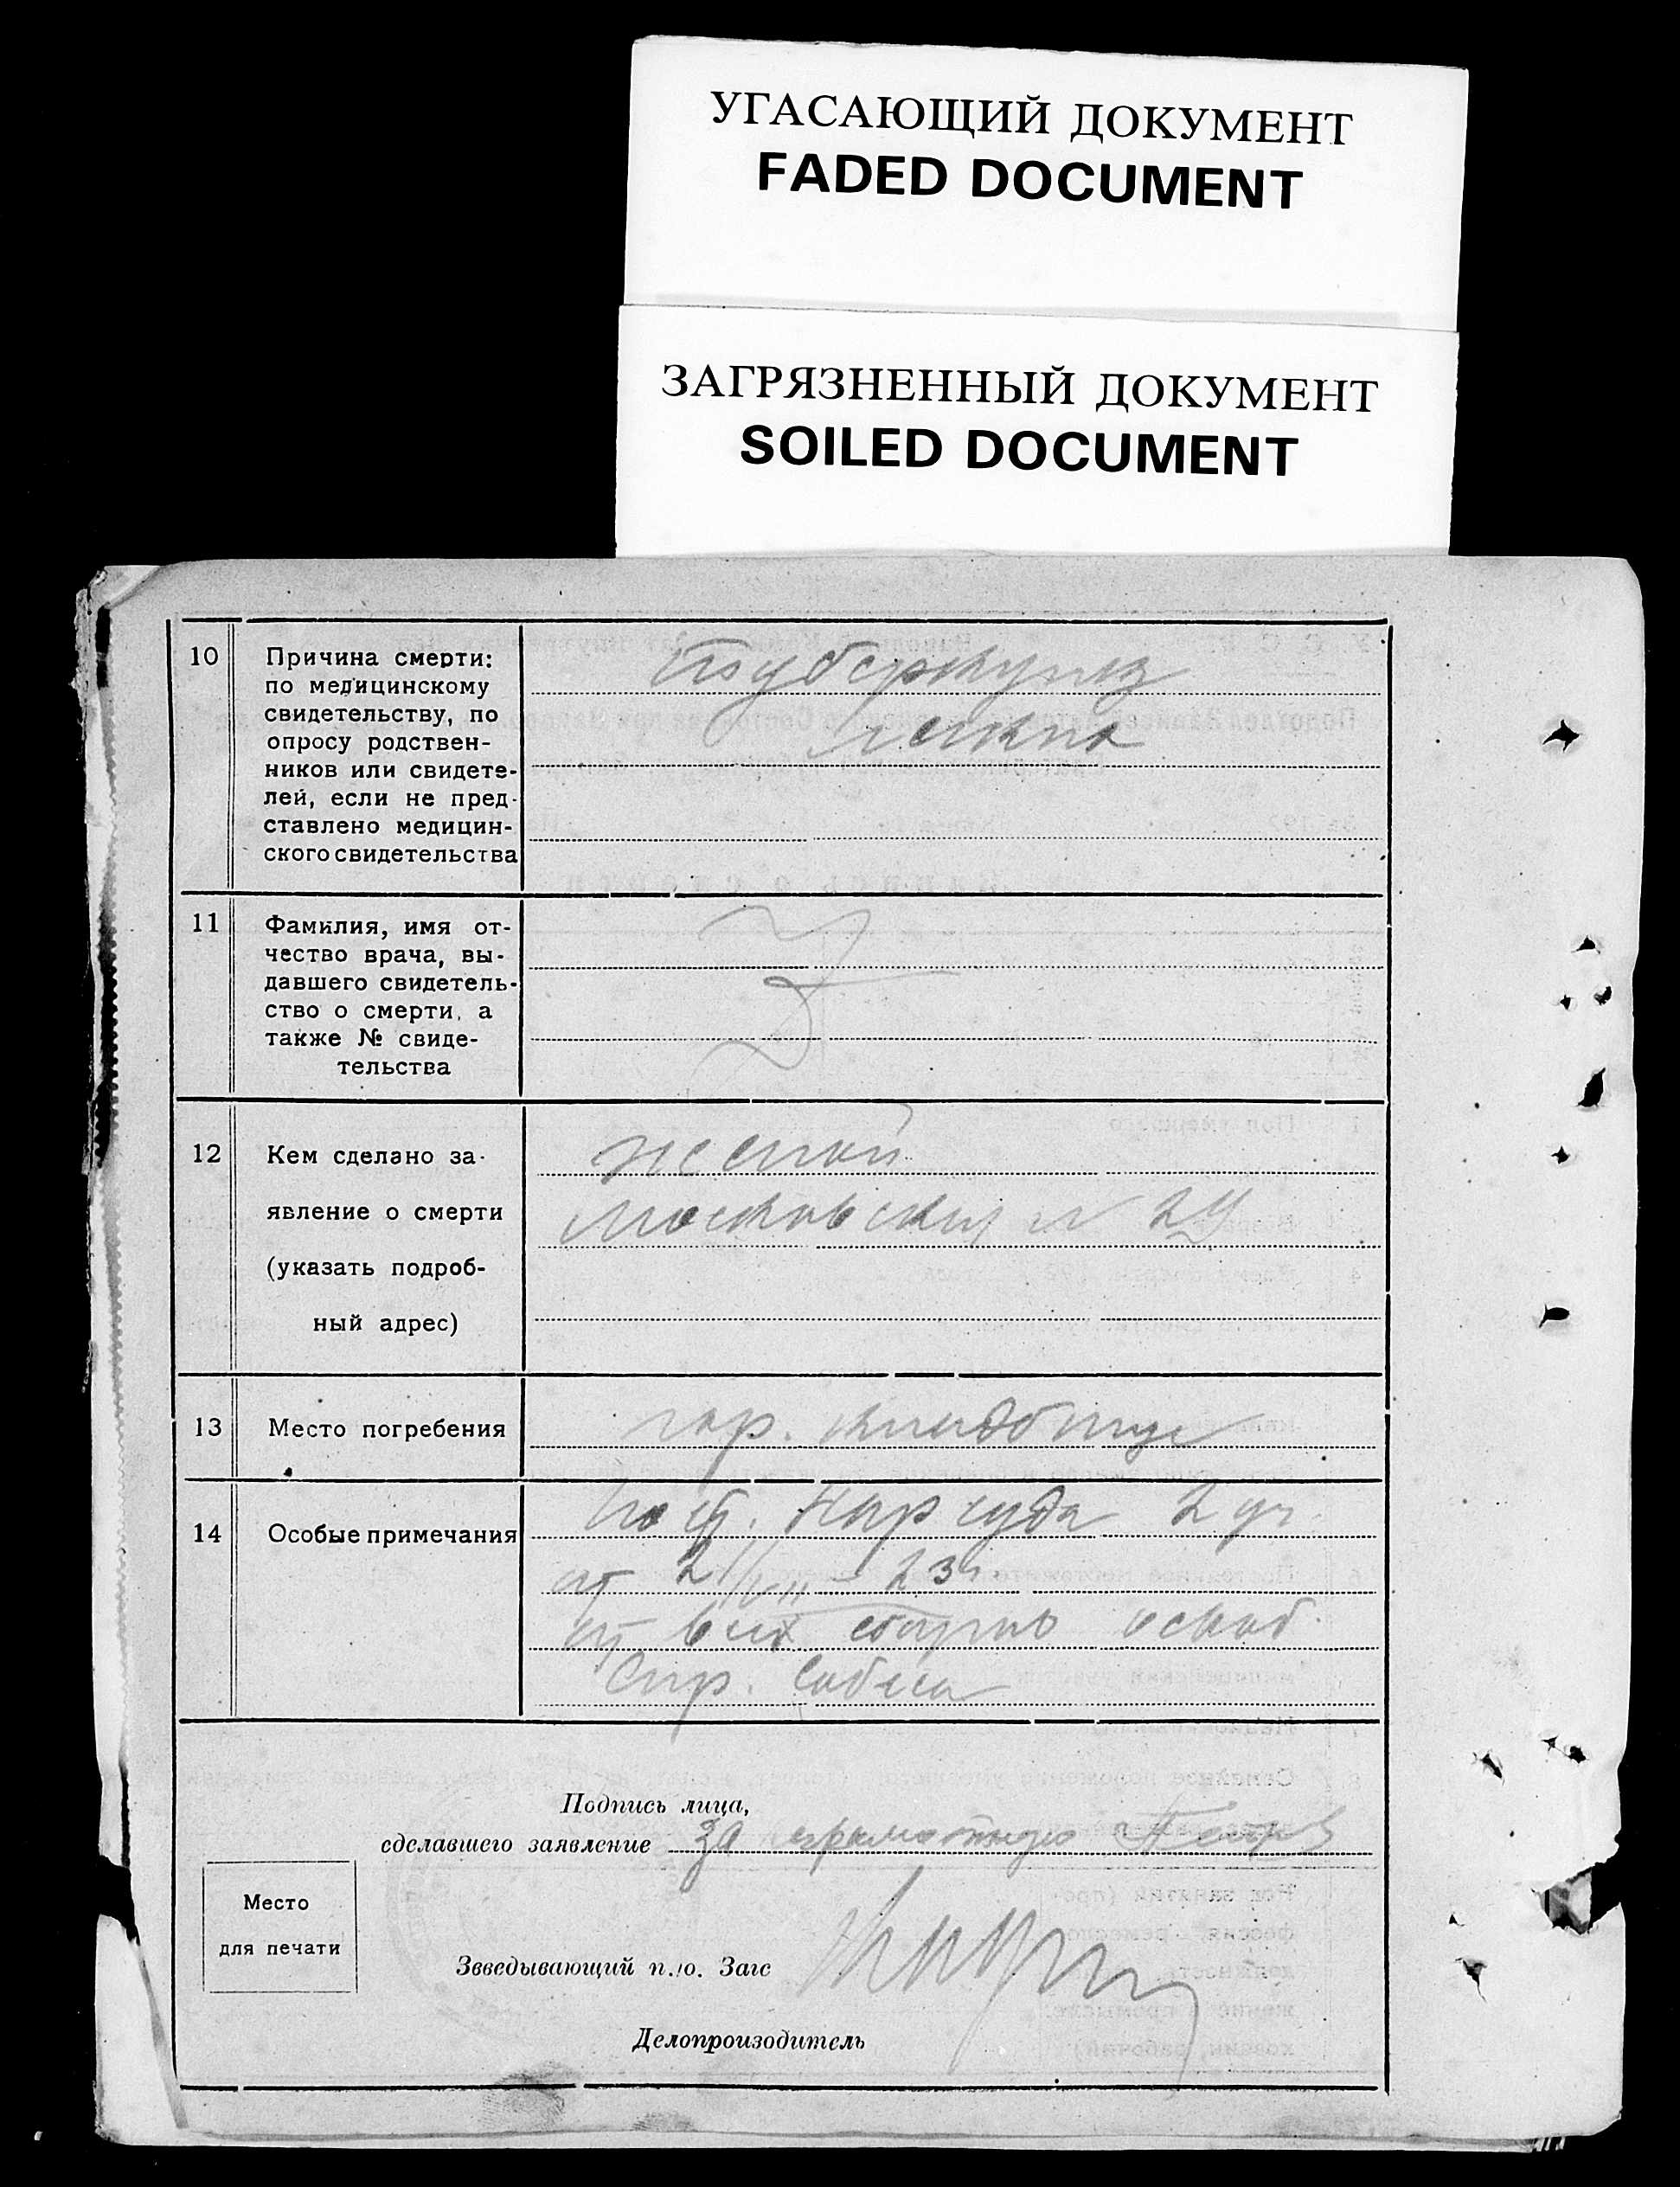 УГАСАЮЩИЙ ДОКУМЕНТ
FADED DOCUMENT
ЗАГРЯЗНЕННЫЙ ДОКУМЕНТ
SOILED DOCUMENT
10
Причина смерти:
по медицинскому
свидетельству, по
опросу родствен-
ников или свидете-
лей, если не пред-
ставлено медицин-
ского свидетельства
Туберкулез
легких
11
Фамилия, имя от-
чество врача, вы-
давшего свидетель-
ство о смерти, а
также № свиде-
тельства
12
Кем сделано за-
явление о смерти
(указать подроб-
ный адрес)
женой
Московская
13
Место погребения
гор. кладбище
14
Особые примечания
Пост. Нарсуда 2 уч
от
от всех сборов освоб.
Спр. Собеса
Подпись лица,
сделавшего заявление за
Место
для печати
Зведывающий п./о. Загс
Делопроизодитель